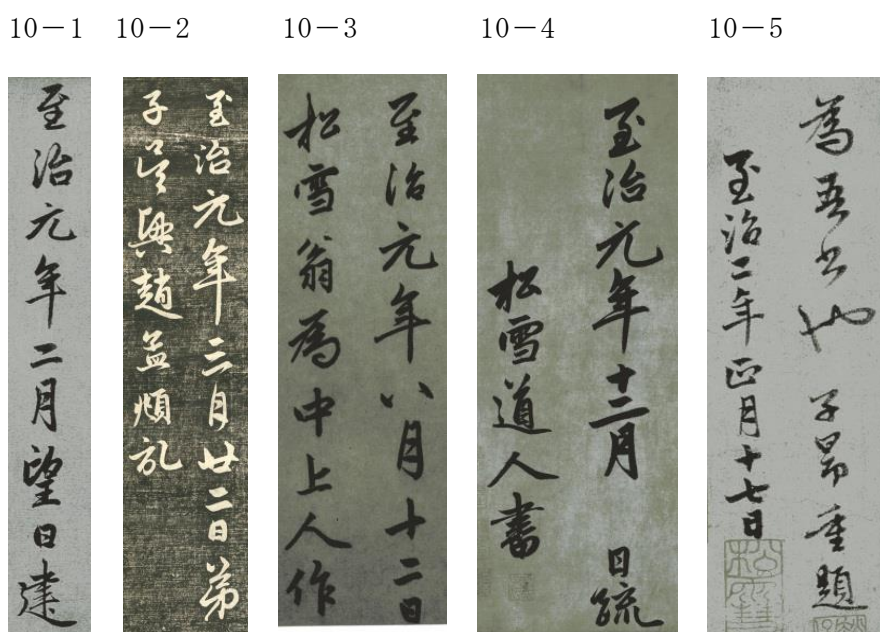 10－1
10－2
10－3
10－4
10－5
至治元年二月望日建
至治元年三月廿二日弟
子吳興趙孟頫記
至治元年八月十二日
松雪翁為中上人作
至治元年十二月 日疏
松雪道人書
為吾書也 子昂重題
至治二年正月十七日